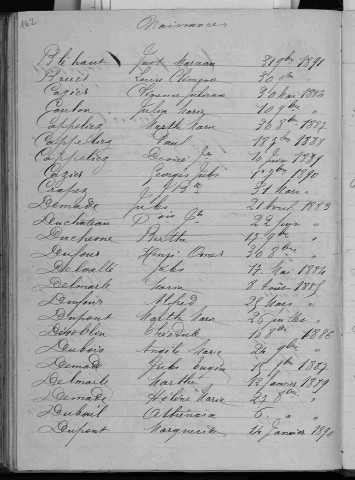 162
Naissances
Bléhaut Just Marceau 31 9bre 1891
Pruit Louis Clément 30 "
Cazier Florence Julienne 30 Mai 1882
Coulon Julia Marie 10 9bre "
Cappeliez Marthe Marie 30 8bre 1887
Cappeliez Paul 18 7bre 1888
Cappeliez Désiré Jn 10 Juin 1889
Cazier Georges Jules 1890
Crapez J. Bte 31 Mars "
Demade Jules 21 Avril 1883
Duchateau Fois Jh 22 Juin "
Duchesne Berthe 17 9bre "
Dufour Henri Omer 30 8bre "
Delvallée Jules 17 Mai 1884
Delmarle Maria 8 Août 1885
Dufour Alfred 25 Mars "
Dupont Marthe Marie 25 Juillet "
Théodule 12 8bre 1886
Dubois Angèle Marie 24 9bre "
Demade Jules Eugène 15 9bre 1887
Delmarle Marthe 13 Janvier 1889
Demade Hélène Marie 27 8bre "
Dubail Athénaïs 6 " "
Dupont Marguerite 14 Janvier 1890